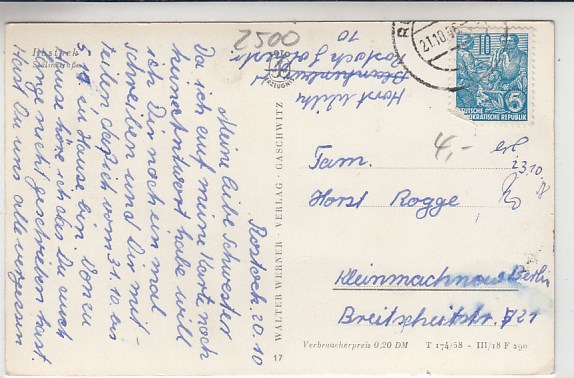 Rostock
Stalinstraße
2500
Horst Wilk
Rostock
10
21.10.
10
5
DEUTSCHE
DEMOKRATISCHE REPUBLIK
4,-
erl
23.10.
Fam.
Horst Rogge
Kleinmachnow Berlin
Breitscheitstr. 21
Verbraucherpreis 0,20 DM T 174/58 - III/18 F 290
WALTER WERNER · VERLAG · GASCHWITZ
17
Rostock. 20.10
Meine liebe Schwester
Da ich auf meine Karte noch
keine Antwort habe will
ich Dir noch ein mal
schreiben und Dir mit-
teilen daß ich vom 31.10. bis
5.11. in Hause bin. Von
Hause höre ich das Du auch
lange nicht geschrieben hast
Hast Du uns alle vergessen